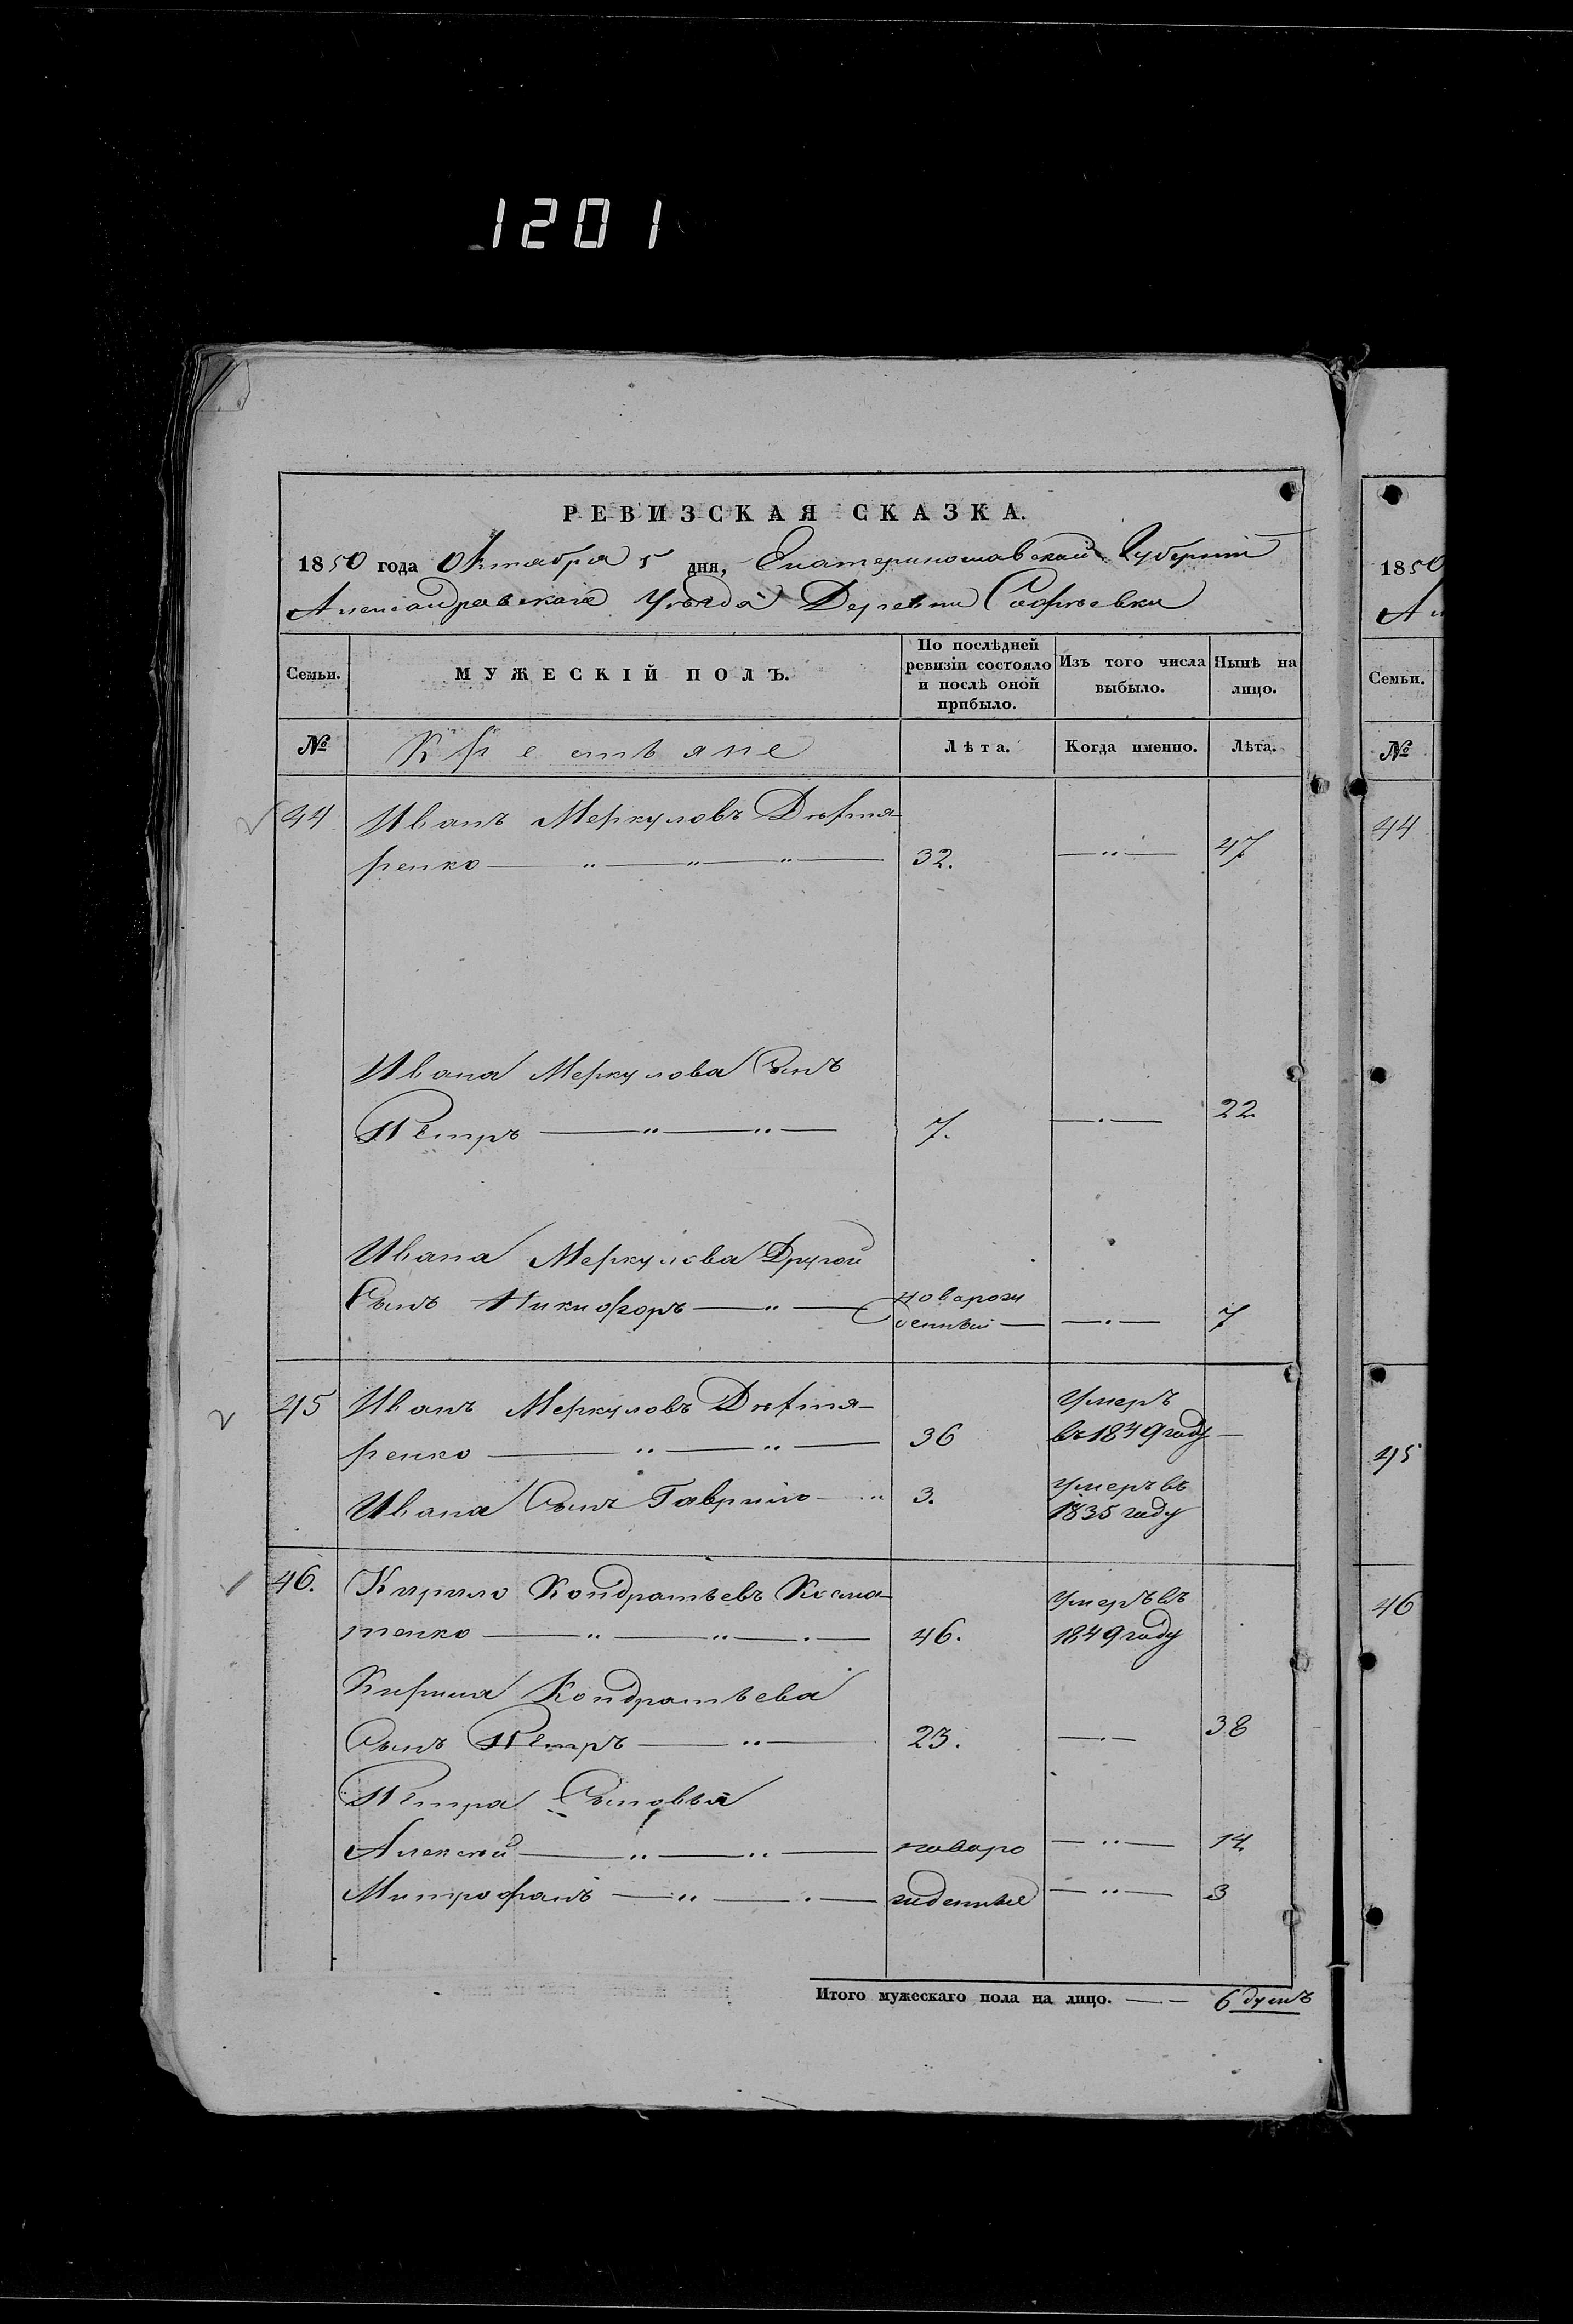 1201
РЕВИЗСКАЯ СКАЗКА.
1850 года Октября 5 дня, Екатеринославской Губерніи
Александровскаго Уѣзда Деревни Софіевки
Семьи. МУЖЕСКІЙ ПОЛЪ. По послѣдней ревизіи состояло и послѣ оной прибыло. Изъ того числа выбыло. Нынѣ на лицо.
№ Крестьяне Лѣта. Когда именно. Лѣта.
44 Иванъ Меркуловъ Дегтя-
ренко 32. 47
Ивана Меркулова Сынъ
Петръ 7. 22
Ивана Меркулова Другой
Сынъ Никифоръ новорож
денный 7
45 Иванъ Меркуловъ Дегтя-
ренко 36 Умеръ
въ 1849 году
Ивана Сынъ Гаврило 3. Умеръ въ
1835 году
46. Кирило Кондратьевъ Косма-
тенко 46. Умеръ въ
1849 году
Кирила Кондратьева
Сынъ Петръ 23. 38
Петра Сыновья
Алексѣй новоро 14
Митрофанъ жденные 3
Итого мужескаго пола на лицо. 6 душъ
1850
А
Семьи.
№
44
45
46